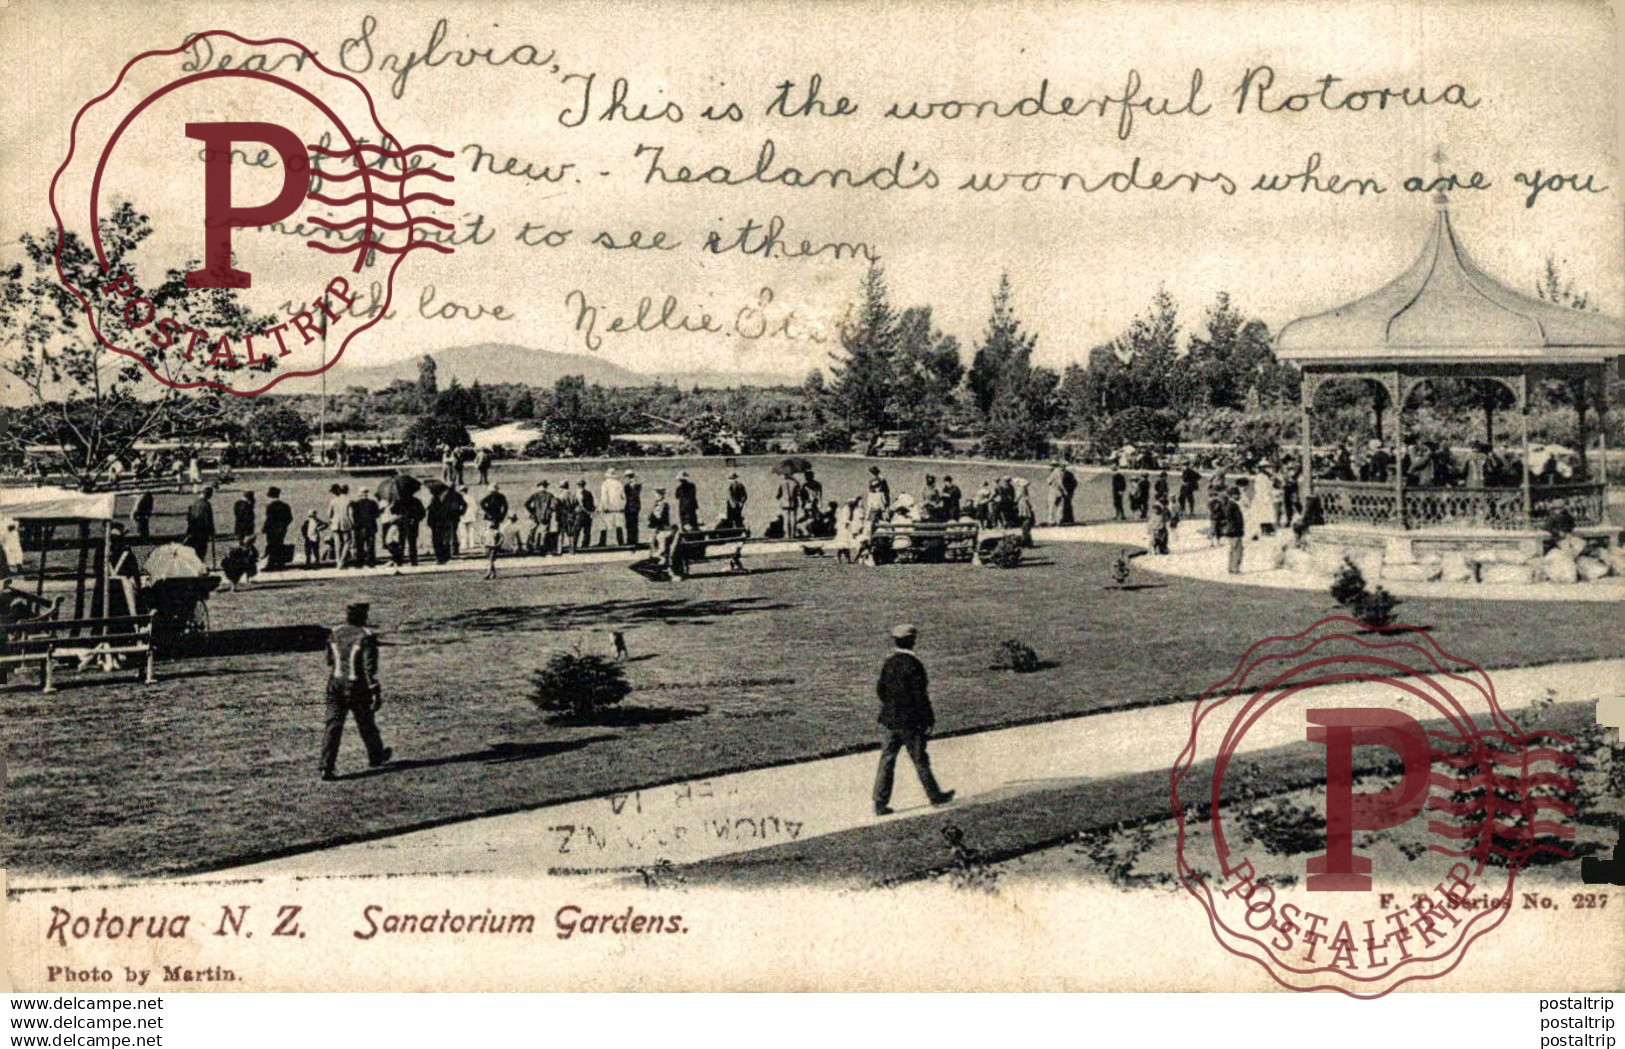 Dear Sylvia,
This is the wonderful Rotorua
one of the New. - Zealand's wonders when are you
coming out to see them
with love Nellie.
POSTALTRIP
AUCKLAND N.Z.
14
Rotorua N. Z. Sanatorium Gardens.
F. T. Series No. 227
Photo by Martin.
POSTALTRIP
POSTALTRIP
www.delcampe.net postaltrip
www.delcampe.net postaltrip
www.delcampe.net postaltrip